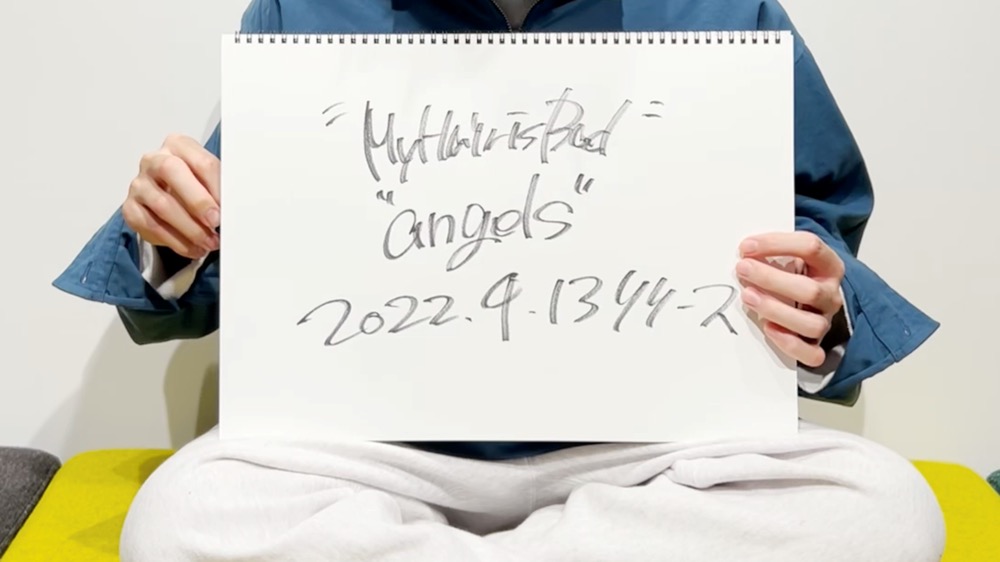 "MyHairisBad"
"angels"
2022.4.13リリース